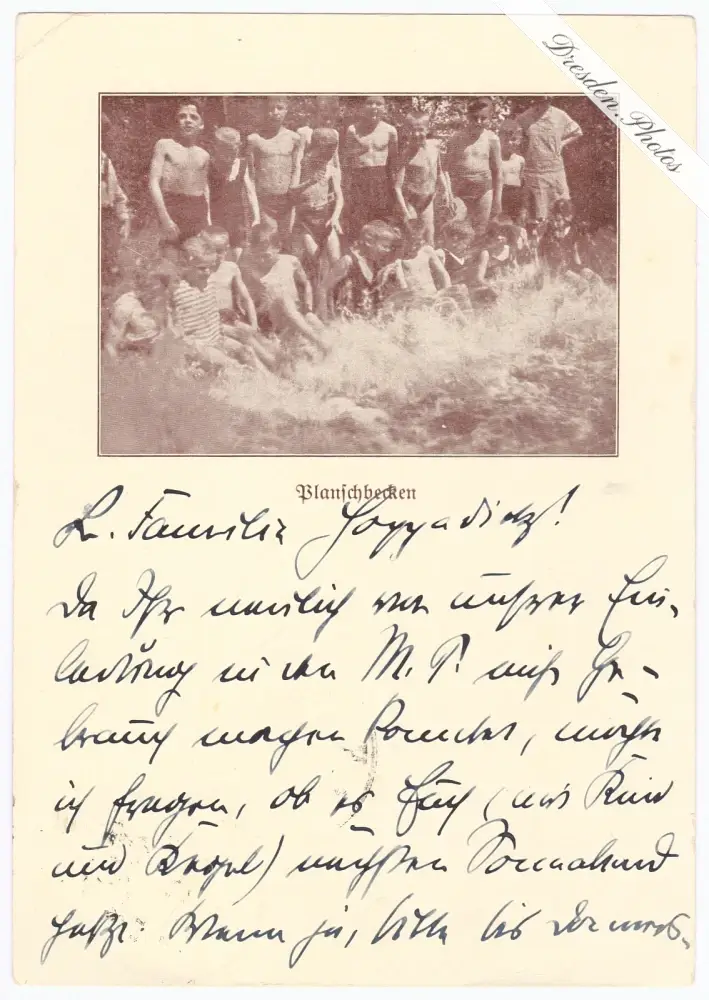 Dresden.Photos
Planschbecken
L. Familie
Da Ihr neulich von unserer Ein-
ladung in den M. P. nicht Ge-
brauch machen konntet, möchte
ich fragen, ob es Euch (mit Kind
und Kegel) nächsten Sonnabend
paßt. Wenn ja, bitte bis